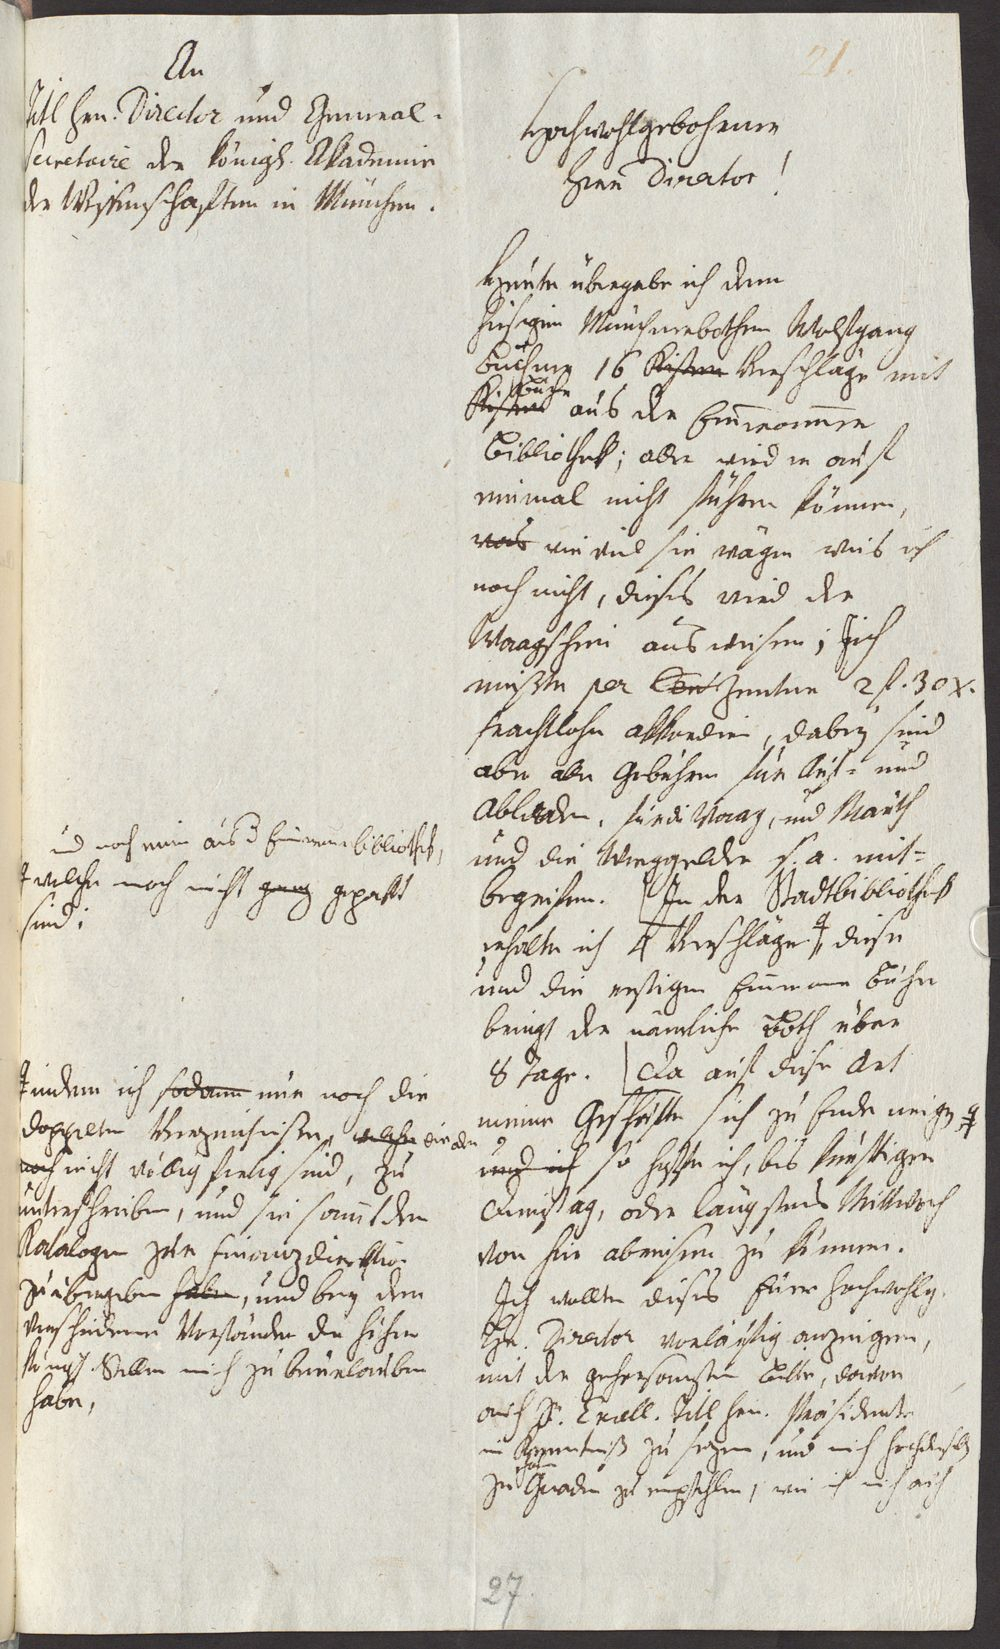 21.
An
Titl Hrn. Director und General-
Secretaire der königl. Akademie
der Wissenschaften in München.
Hochwohlgebohrner
Herr Director!
Heute übergabe ich dem
hiesigen Münchnerbothen Wolfgang
Büchner 16 Kisten Verschläge mit
Kisten Büche aus der Emmeramer
Bibliothek; aber wird er auf
einmal nicht führen können,
was wie viel sie wägen weis ich
noch nicht, dieses wird der
Waagschein ausweisen; ich
mußte per Cent Zentner 2 fl. 30 x.
Frachtlohn akkordiren, dabey sind
aber alle Gebühren für Auf- und
Abladen, für die Waag, und Mauth
und die Weggelder s. a. mit-
begriffen. In der Stadtbibliothek
erhalte ich 4 Verschläge, diese
und die restigen Emmeramer Bücher
bringt der nämliche Both über
8 Tage. Da auf diese Art
meine Geschäfte sich zu Ende neigen
und ich so hoffe ich, bis künftigen
Dienstag, oder längstens Mittwoch
von hier abreisen zu können.
Ich wollte dieses Euer Hochwohlg.
Hr. Director vorläufig anzeigen,
mit der gehorsamsten Bitte, davon
auch Sr. Excell. Titl Hrn. Präsidenten
in Kenntniß zu setzen, und mich hochdesselben
zu Gnaden zu empfehlen, wie ich mich auch
und noch eine aus Emmeramer bibliothek,
welche noch nicht ganz gepakt
sind;
indem ich sodann nur noch die
doppelten Verzeichnisse, welche die aber
noch nicht völlig fertig sind, zu
unterschreiben, und sie sammt den
Katalogen zur Finanzdirektion
zu übergeben habe, und bey den
verschiedenen Vorständen der hohen
königl. Stellen mich zu beurlauben
habe,
27